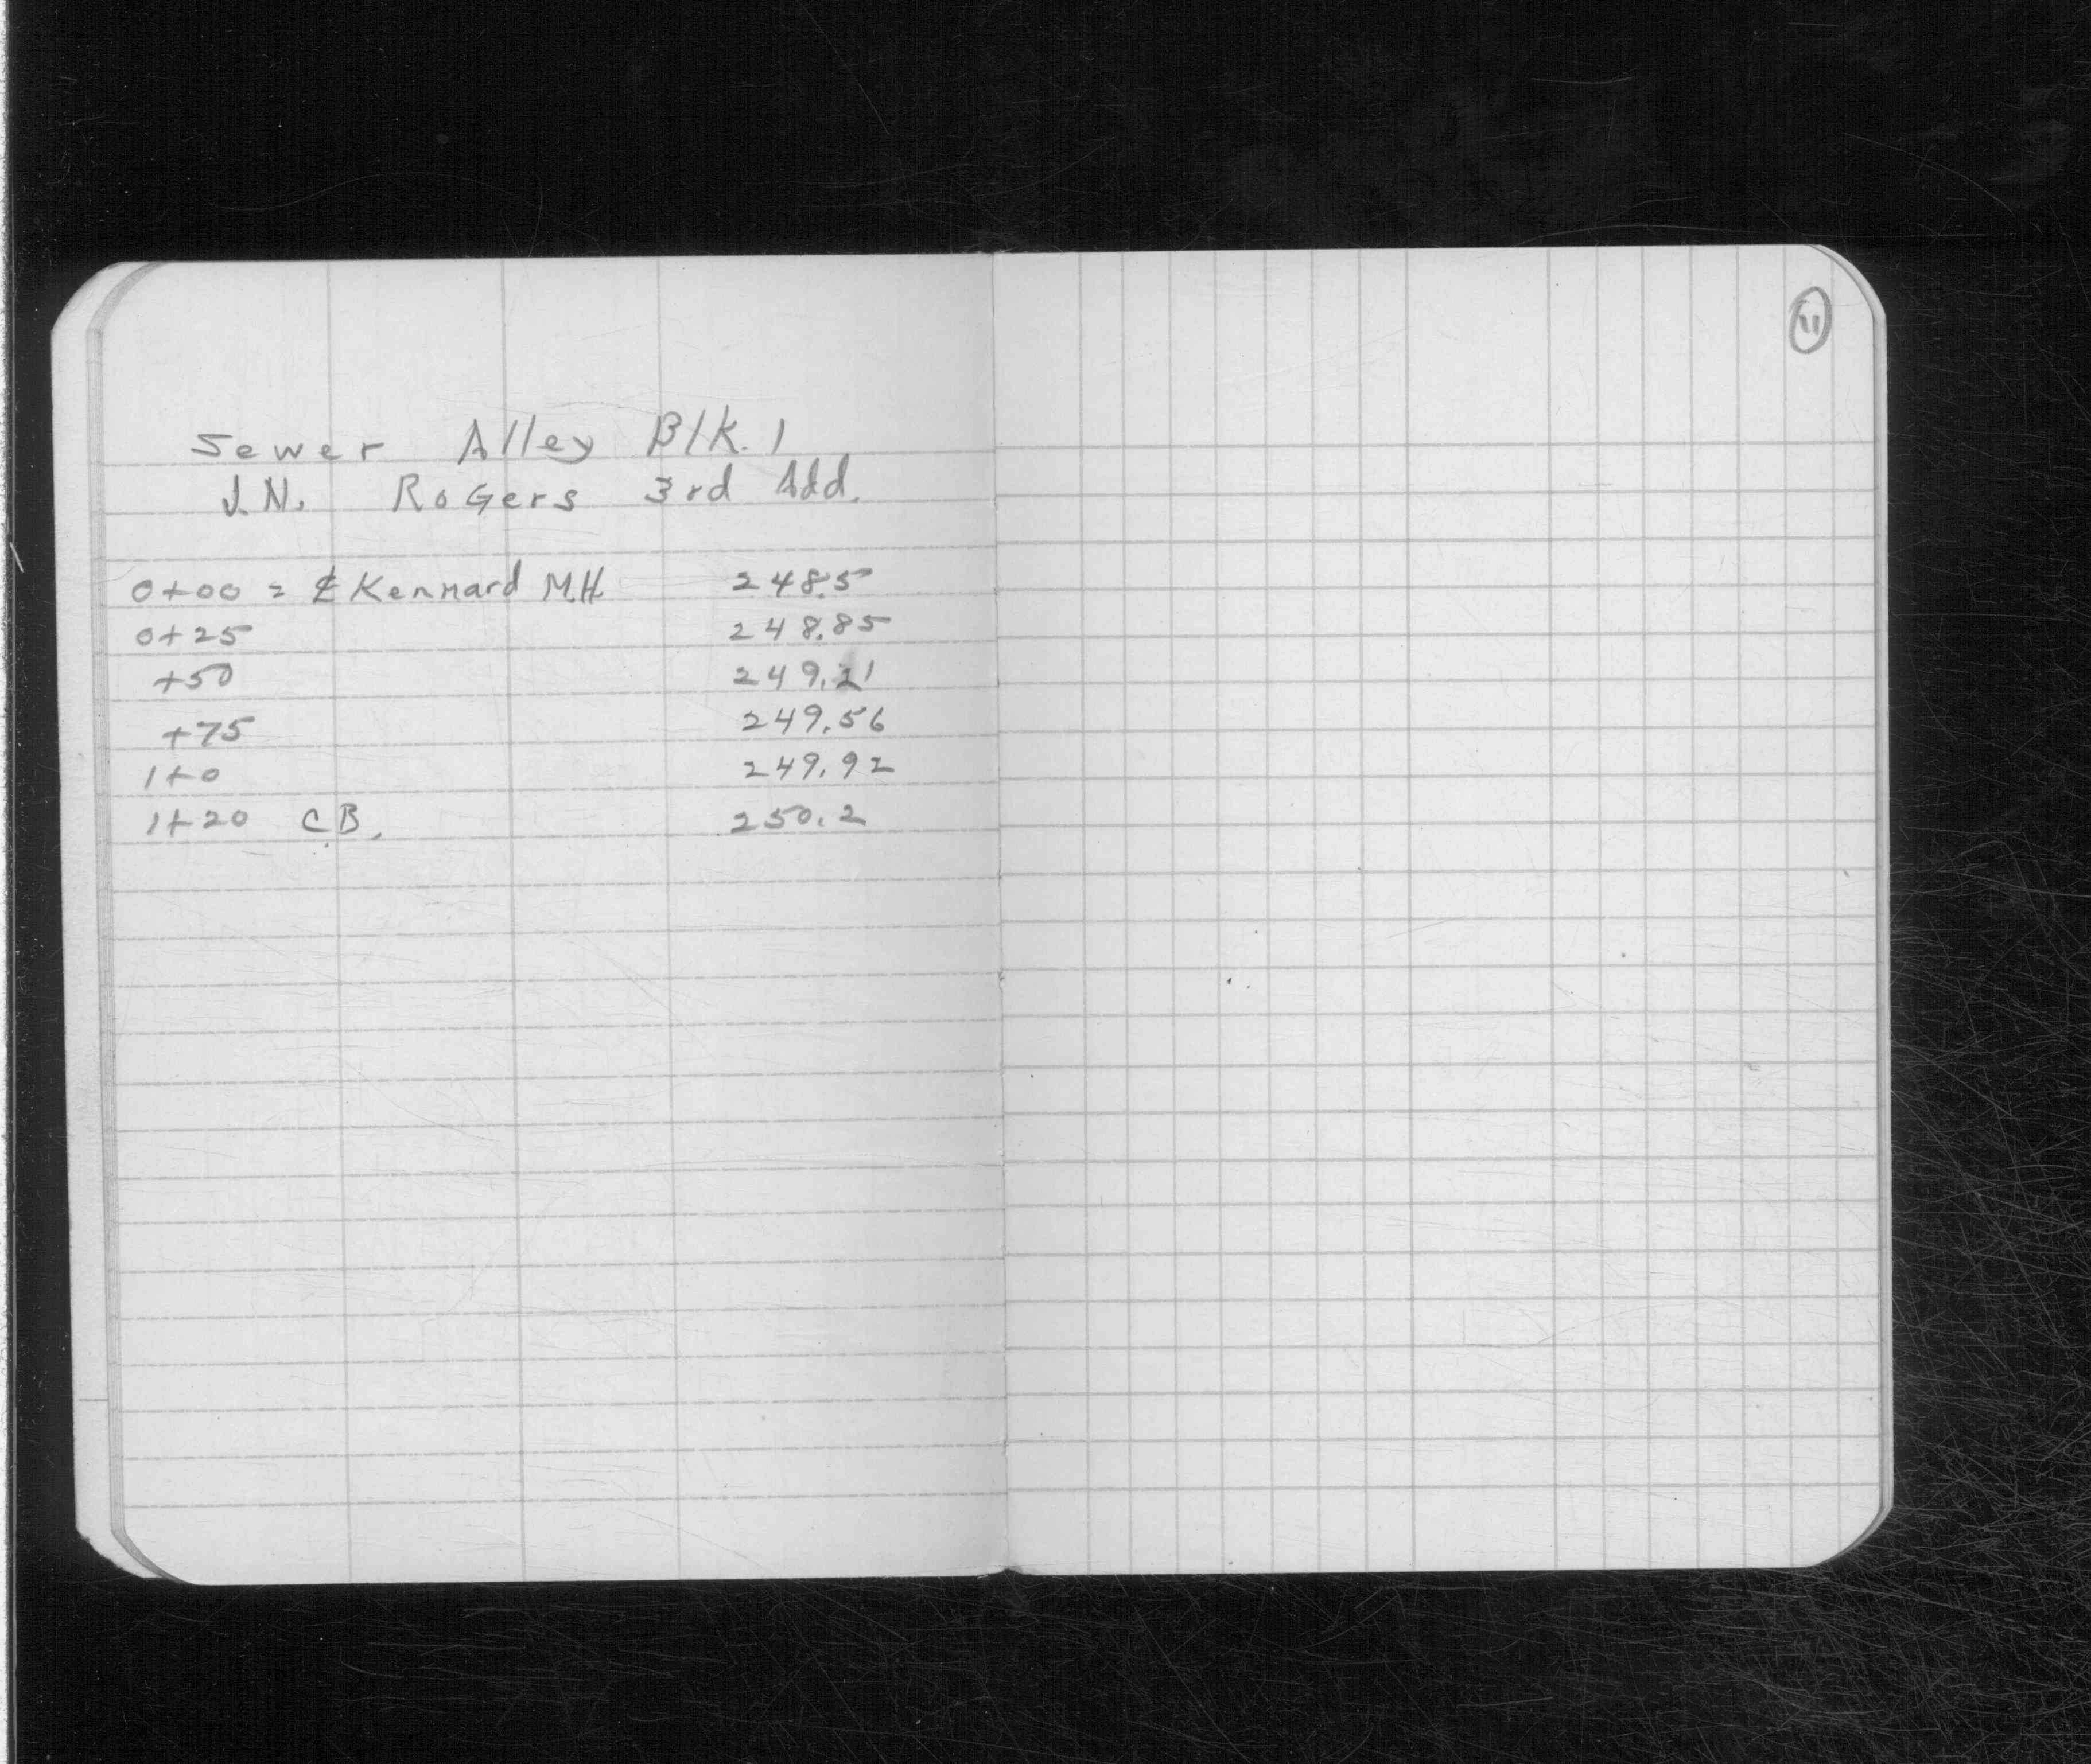 Sewer Alley Blk. 1
J.N. RoGers 3rd Add.
0+00 = ℄ Kennard M.H. 248.5
0+25 248.85
+50 249.21
+75 249.56
1+0 249.92
1+20 C.B. 250.2
11